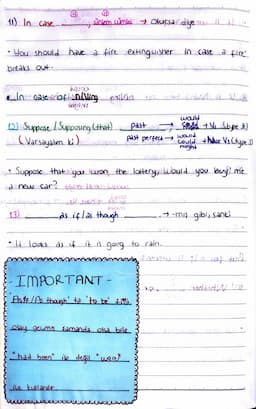 11) In case → Olursa diye
• You should have a fire extinguisher in case a fire
breaks out.
• In case of
12) Suppose / Supposing (that) past → would + V1 (type 2)
(Varsayalım ki) past perfect → would could might + have V3 (type 3)
• Suppose that you won the lottery, would you buy me
a new car?
13) as if / as though → -mış gibi, sanki
• It looks as if it is going to rain.
- IMPORTANT -
"As if / As though" ta "to be" fiili
olay geçmiş zamanda olsa bile
"had been" ile değil "were"
ile kullanılır.